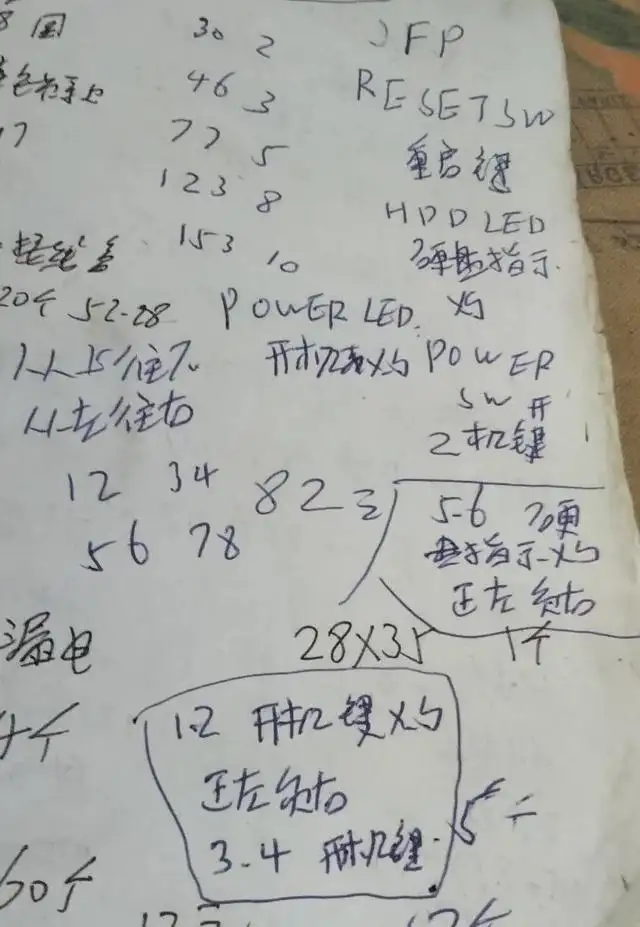 国 30 2 JFP
46 3 RESETSW
7 77 5 重启键
123 8 HDD LED
153 10 硬盘指示
20个 52-28 POWER LED. 灯
从上往下 开机灯 POWER
从左往右 SW 开
2 机键
12 34 82
56 78 5-6 硬
盘指示灯
正左负右
漏电 28X35 1个
4个 1.2 开机键灯
正左负右
3.4 开机键.
60个